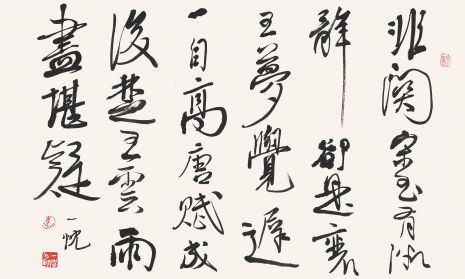 非關宋玉有微
辭卻是襄
王夢覺遲
一自高唐賦成
後楚天雲雨
盡堪疑